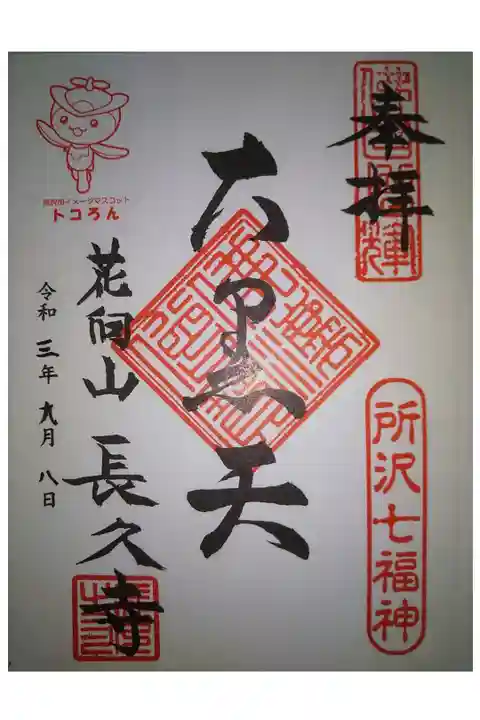 奉拝
所沢七福神
大黒天
花向山 長久寺
令和 三年 九月 八日
所沢市イメージマスコット
トコろん